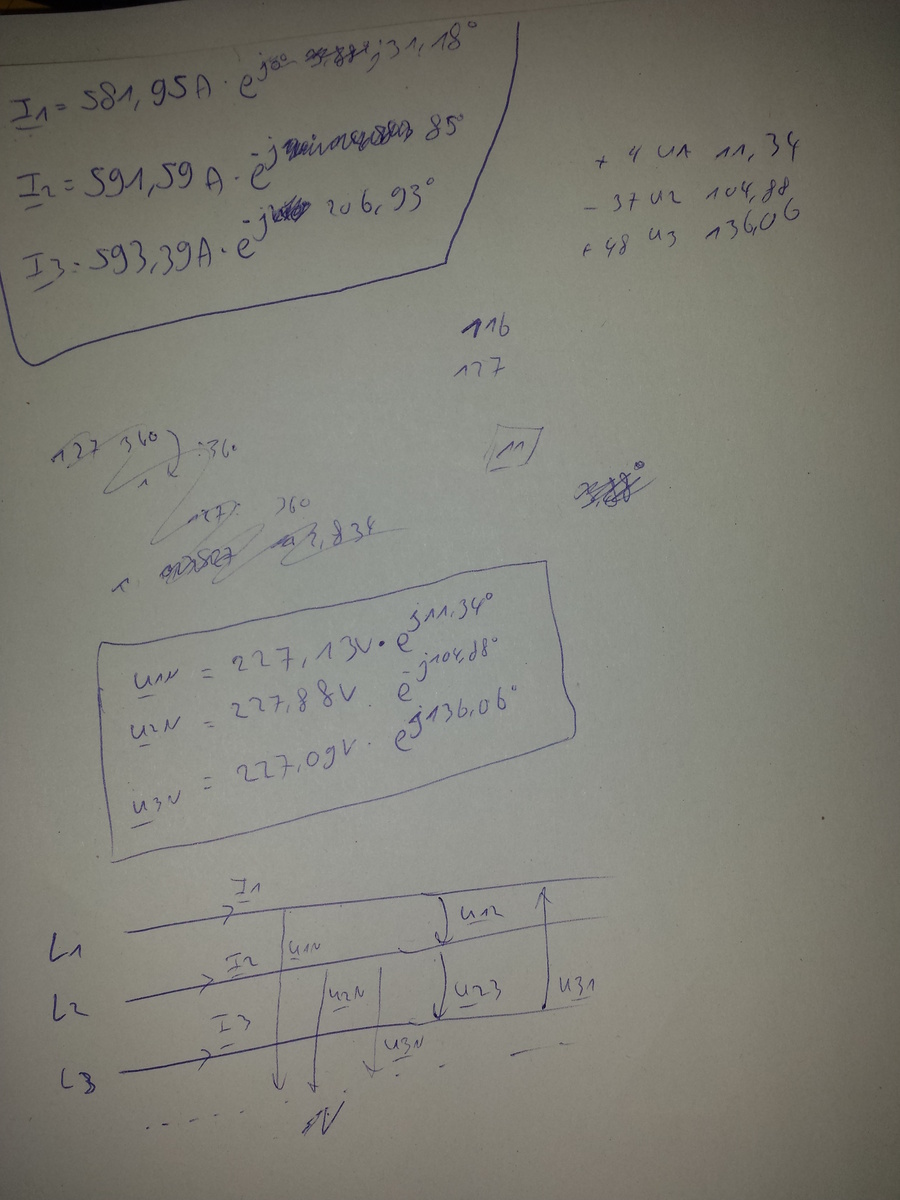 I1 = 581,95A · e^j31,18°
I2 = 591,59A · e^-j 85°
I3 = 593,39A · e^-j 206,93°
+ 4 U1 11,34
- 37 U2 104,88
+ 48 U3 136,06
116
127
127 360 :36
11
127: 360
2,834
U1N = 227,13V · e^j11,34°
U2N = 227,88V · e^-j104,88°
U3N = 227,09V · e^j136,06°
I1
L1 U1N U12
I2
L2 U2N U23 U31
I3
L3 U3N
N